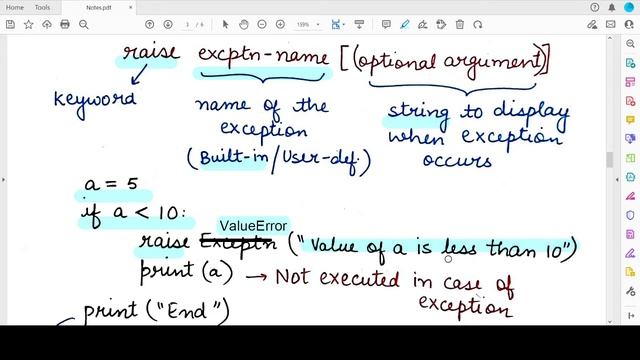 Home Tools Notes.pdf ×
3 / 6 159%
raise excptn-name [(optional argument)]
keyword name of the string to display
exception when exception
(Built-in/User-def.) occurs
a = 5
if a < 10:
ValueError
raise Exceptn ("Value of a is less than 10")
print (a) → Not executed in case of
exception
print ("End")